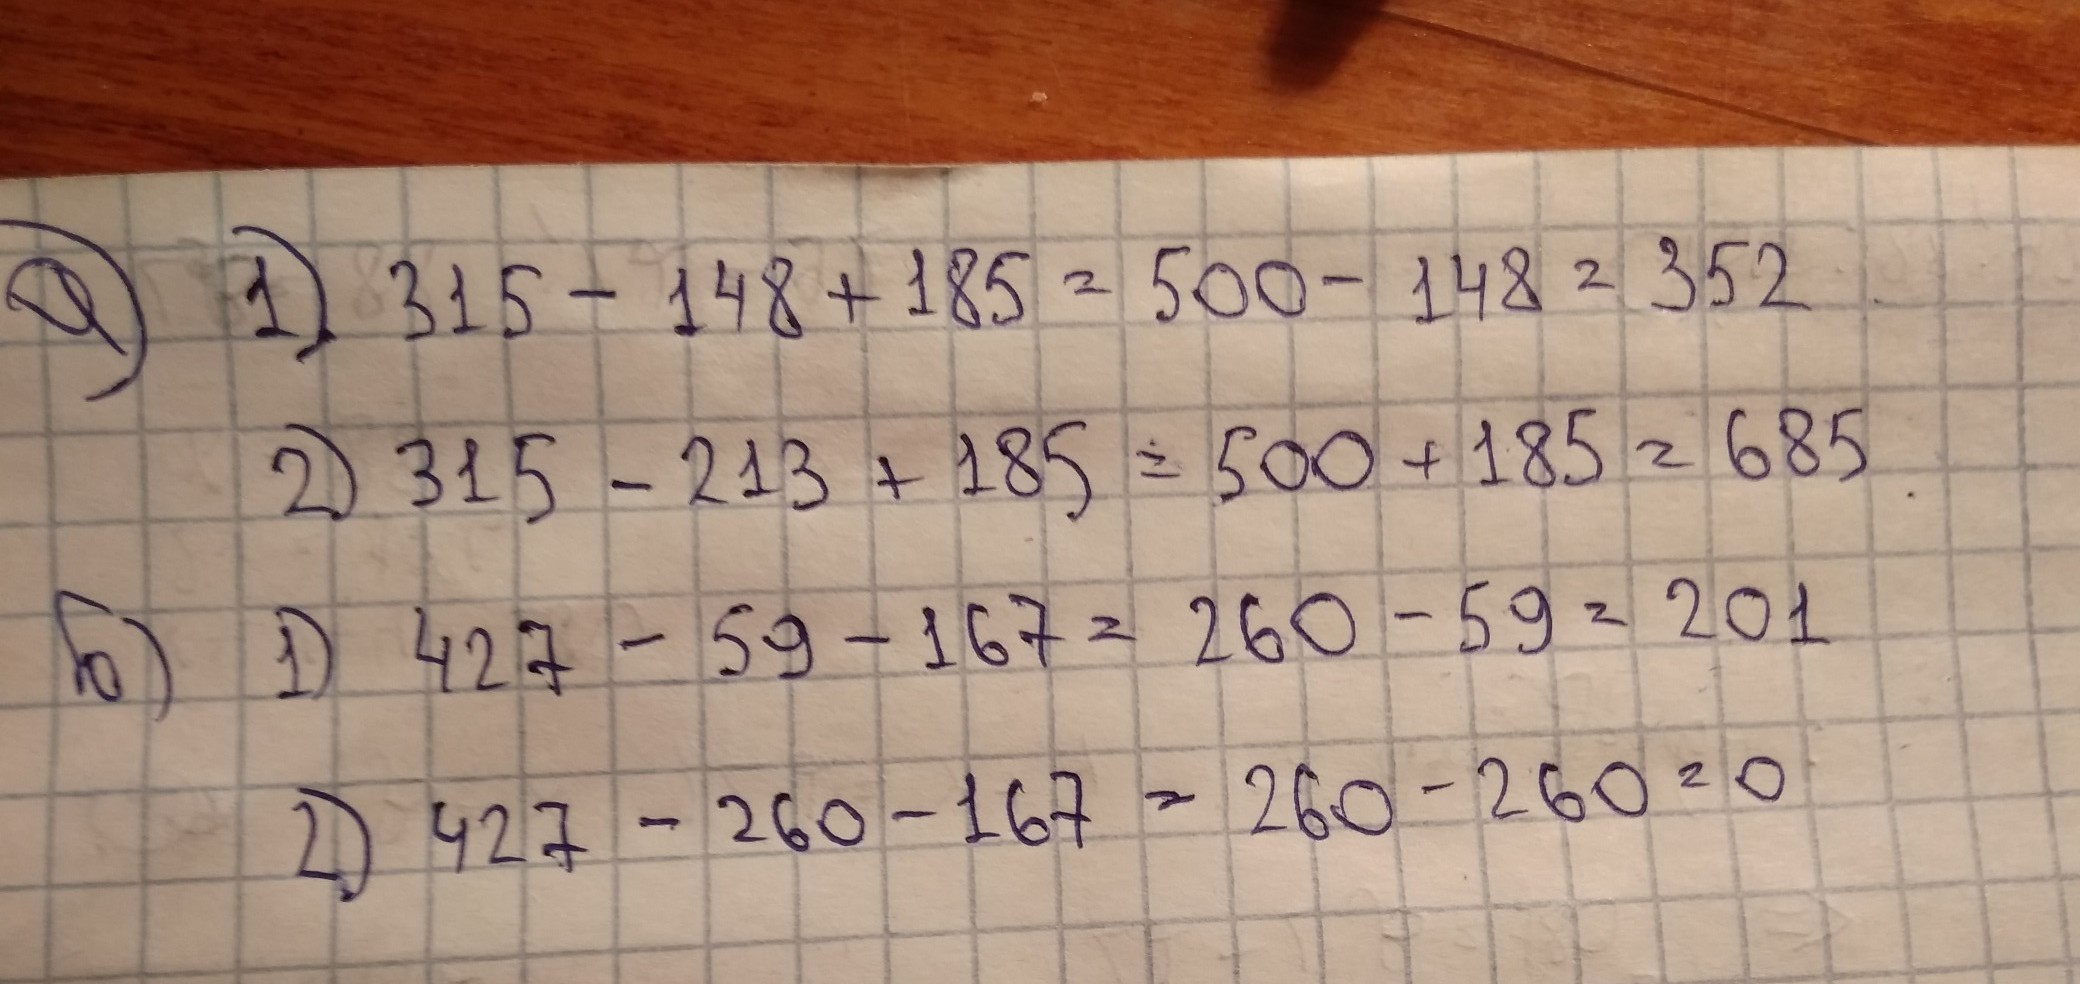 а) 1) 315 - 148 + 185 = 500 - 148 = 352
2) 315 - 213 + 185 = 500 + 185 = 685
б) 1) 427 - 59 - 167 = 260 - 59 = 201
2) 427 - 260 - 167 = 260 - 260 = 0